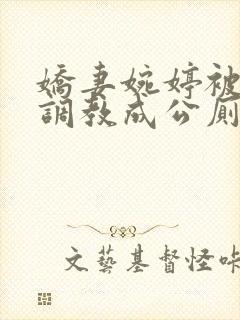 嬌妻婉婷被
調教成公廁
文藝基督怪咔